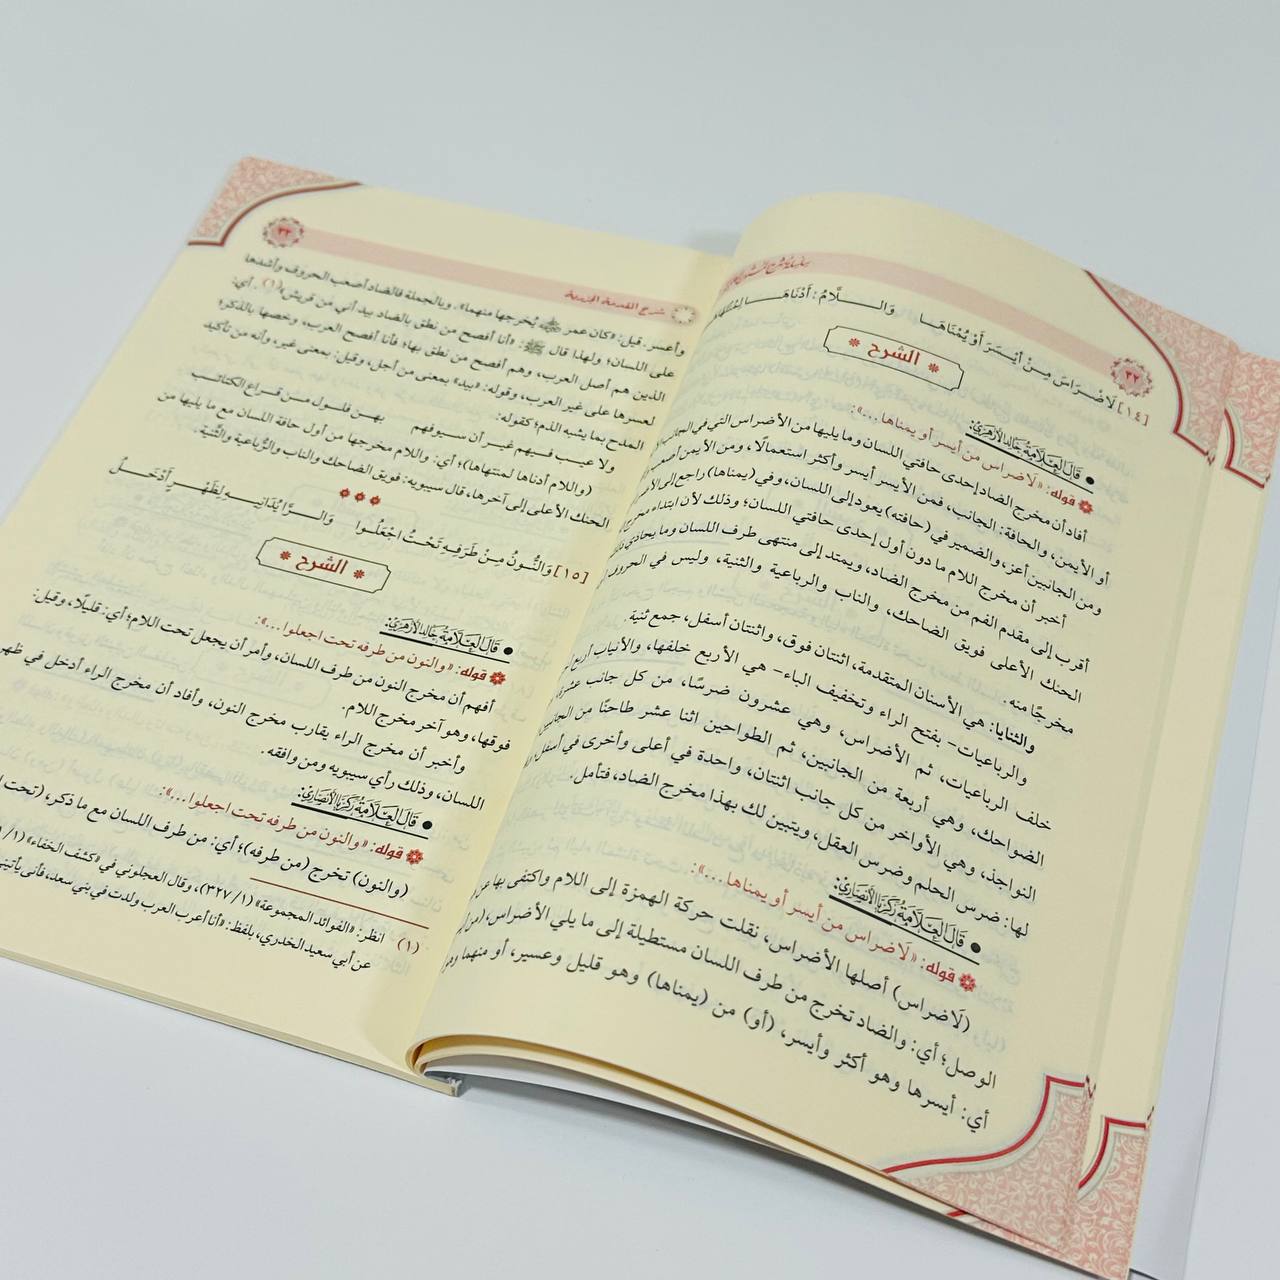 ٢٢
[١٤] لَاضْرَاسَ مِنْ أَيْسَرَ أَوْ يُمْنَاهَا وَالـلَّامُ: أَدْنَاهَـا
الشرح
• قَالَ العَلَّامَةُ خَالِدٌ الأَزْهَرِيُّ:
قوله: «لَاضراس من أيسر أو يمناها...»:
أفاد أن مخرج الضاد إحدى حافتي اللسان وما يليها من الأضراس التي في
أو الأيمن، والحافة: الجانب، فمن الأيسر أيسر وأكثر استعمالًا، ومن الأيمن أصعب
ومن الجانبين أعز، والضمير في (حافته) يعود إلى اللسان، وفي (يمناها) راجع إلى
أخبر أن مخرج اللام ما دون أول إحدى حافتي اللسان؛ وذلك لأن ابتداء مخرج
أقرب إلى مقدم الفم من مخرج الضاد، ويمتد إلى منتهى طرف اللسان وما يحاذي
الحنك الأعلى فويق الضاحك، والناب والرباعية والثنية، وليس في الحروف
مخرجًا منه.
والثنايا: هي الأسنان المتقدمة، اثنتان فوق، واثنتان أسفل، جمع ثنية.
والرباعيات- بفتح الراء وتخفيف الياء- هي الأربع خلفها، والأنياب أربع
خلف الرباعيات، ثم الأضراس، وهي عشرون ضرسًا، من كل جانب عشرة
الضواحك، وهي أربعة من الجانبين، ثم الطواحين اثنا عشر طاحنًا من
النواجذ، وهي الأواخر من كل جانب اثنتان، واحدة في أعلى وأخرى في أسفل،
لها: ضرس الحلم وضرس العقل، ويتبين لك بهذا مخرج الضاد، فتأمل.
• قَالَ العَلَّامَةُ زَكَرِيَّا الأَنْصَارِيُّ:
قوله: «لَاضراس من أيسر أو يمناها...»:
(لَاضراس) أصلها الأضراس، نقلت حركة الهمزة إلى اللام واكتفى بها عن
الوصل؛ أي: والضاد تخرج من طرف اللسان مستطيلة إلى ما يلي الأضراس،
أي: أيسرها وهو أكثر وأيسر، (أو) من (يمناها) وهو قليل وعسير، أو منهما
شرح المقدمة الجزرية
٢٣
وأعسر. قيل: «كان عمر ﵁ يُخرجها منهما». وبالجملة فالضاد أصعب الحروف وأشدها
على اللسان؛ ولهذا قال ﷺ: «أنا أفصح من نطق بالضاد بيد أني من قريش»(١). أي:
الذين هم أصل العرب، وهم أفصح من نطق بها؛ فأنا أفصح العرب، وخصها بالذكر؛
لعسرها على غير العرب، وقوله: «بيد» بمعنى من أجل، وقيل: بمعنى غير، وأنه من تأكيد
المدح بما يشبه الذم؛ كقوله:
ولا عيب فيهم غير أن سيوفهم بهن فلول من قراع الكتائب
(واللام أدناها لمنتهاها)؛ أي: واللام مخرجها من أول حافة اللسان مع ما يليها من
الحنك الأعلى إلى آخرها، قال سيبويه: فويق الضاحك والناب والرُّباعية والثَّنية.
[١٥] وَالنُّونُ مِنْ طَرَفِهِ تَحْتُ اجْعَلُوا وَالـرَّا يُدَانِيهِ لِظَهْرٍ أَدْخَلُ
الشرح
• قَالَ العَلَّامَةُ خَالِدٌ الأَزْهَرِيُّ:
قوله: «والنون من طرفه تحت اجعلوا...»:
أفهم أن مخرج النون من طرف اللسان، وأمر أن يجعل تحت اللام؛ أي: قليلًا، وقيل:
فوقها، وهو آخر مخرج اللام.
وأخبر أن مخرج الراء يقارب مخرج النون، وأفاد أن مخرج الراء أدخل في ظهر
اللسان، وذلك رأي سيبويه ومن وافقه.
• قَالَ العَلَّامَةُ زَكَرِيَّا الأَنْصَارِيُّ:
قوله: «والنون من طرفه تحت اجعلوا...»:
(والنون) تخرج (من طرفه)؛ أي: من طرف اللسان مع ما ذكر، (تحت
(١) انظر: «الفوائد المجموعة» (٣٢٧/١)، وقال العجلوني في «كشف الخفاء»
عن أبي سعيد الخدري، بلفظ: «أنا أعرب العرب ولدت في بني سعد، فأنى يأتيني